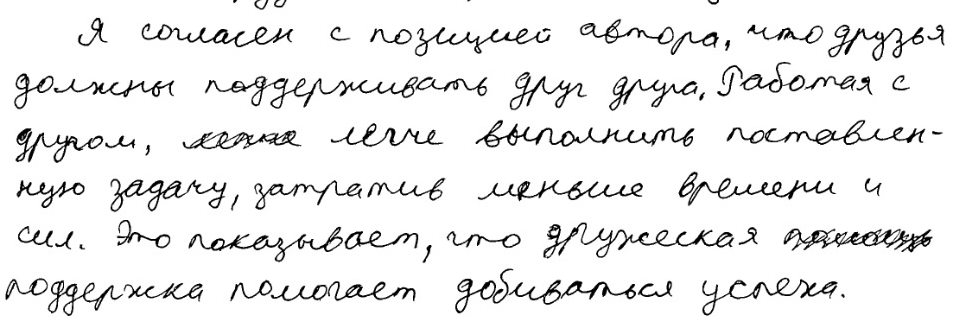 Я согласен с позицией автора, что друзья
должны поддерживать друг друга. Работая с
другом, легче выполнить поставлен-
ную задачу, затратив меньше времени и
сил. Это показывает, что дружеская
поддержка помогает добиваться успеха.